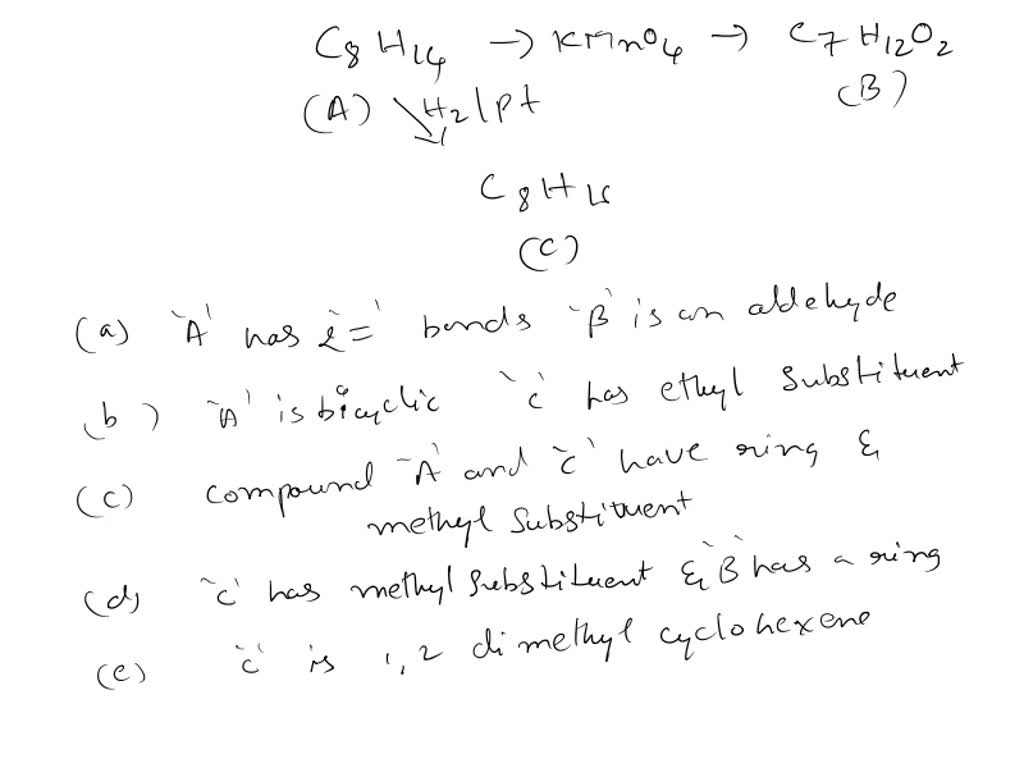 C8 H14 → KMnO4 → C7 H12O2
(A) H2/pt (B)
C8H16
(C)
(a) `A' has 2 `=' bonds `B' is an aldehyde
(b) `A' is bicyclic `C' has ethyl substituent
(c) compound `A' and `C' have ring &
methyl substituent
(d) `C' has methyl substituent & `B' has a ring
(e) `C' is 1,2 dimethyl cyclohexene